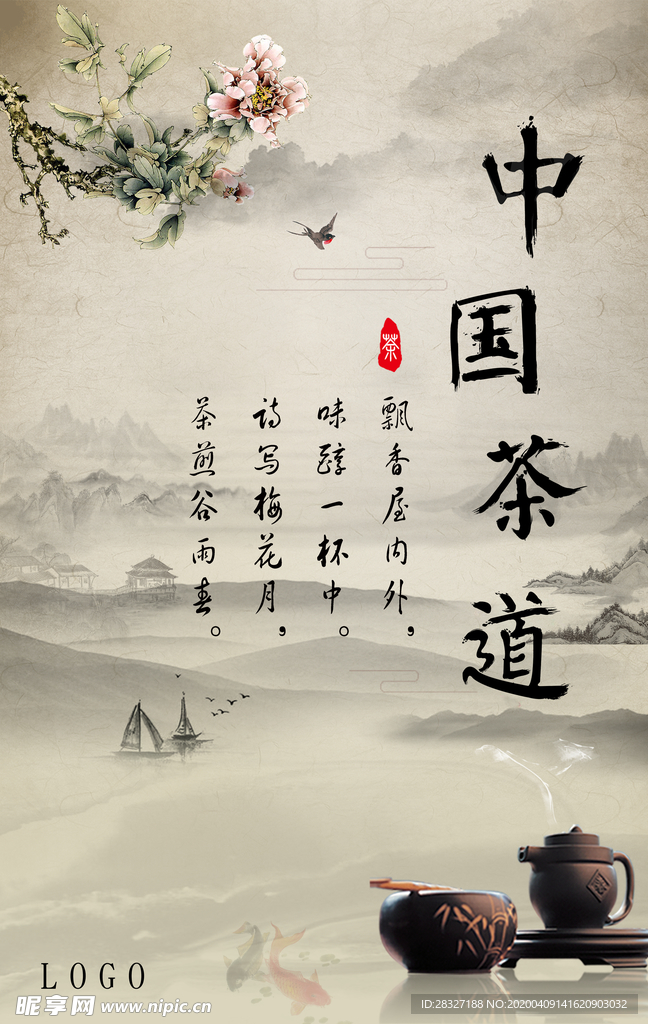 中国茶道
茶
飘香屋内外，
味醇一杯中。
诗写梅花月，
茶煎谷雨春。
LOGO
昵享网 www.nipic.cn
ID:28327188 NO:20200409141620903032